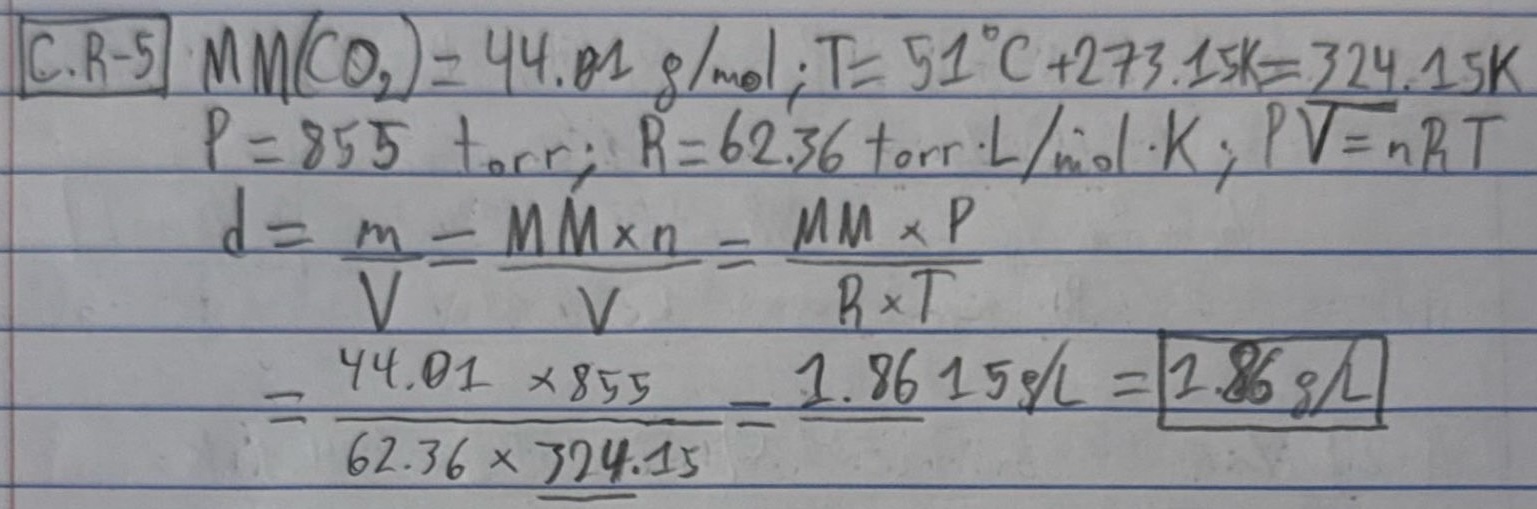 C.R-5 MM(CO₂) = 44.01 g/mol; T = 51°C + 273.15K = 324.15K
P = 855 torr; R = 62.36 torr·L/mol·K; PV = nRT
d = m/V = MM×n/V = MM×P/R×T
= 44.01 × 855/62.36 × 324.15 = 1.8615 g/L = 1.86 g/L